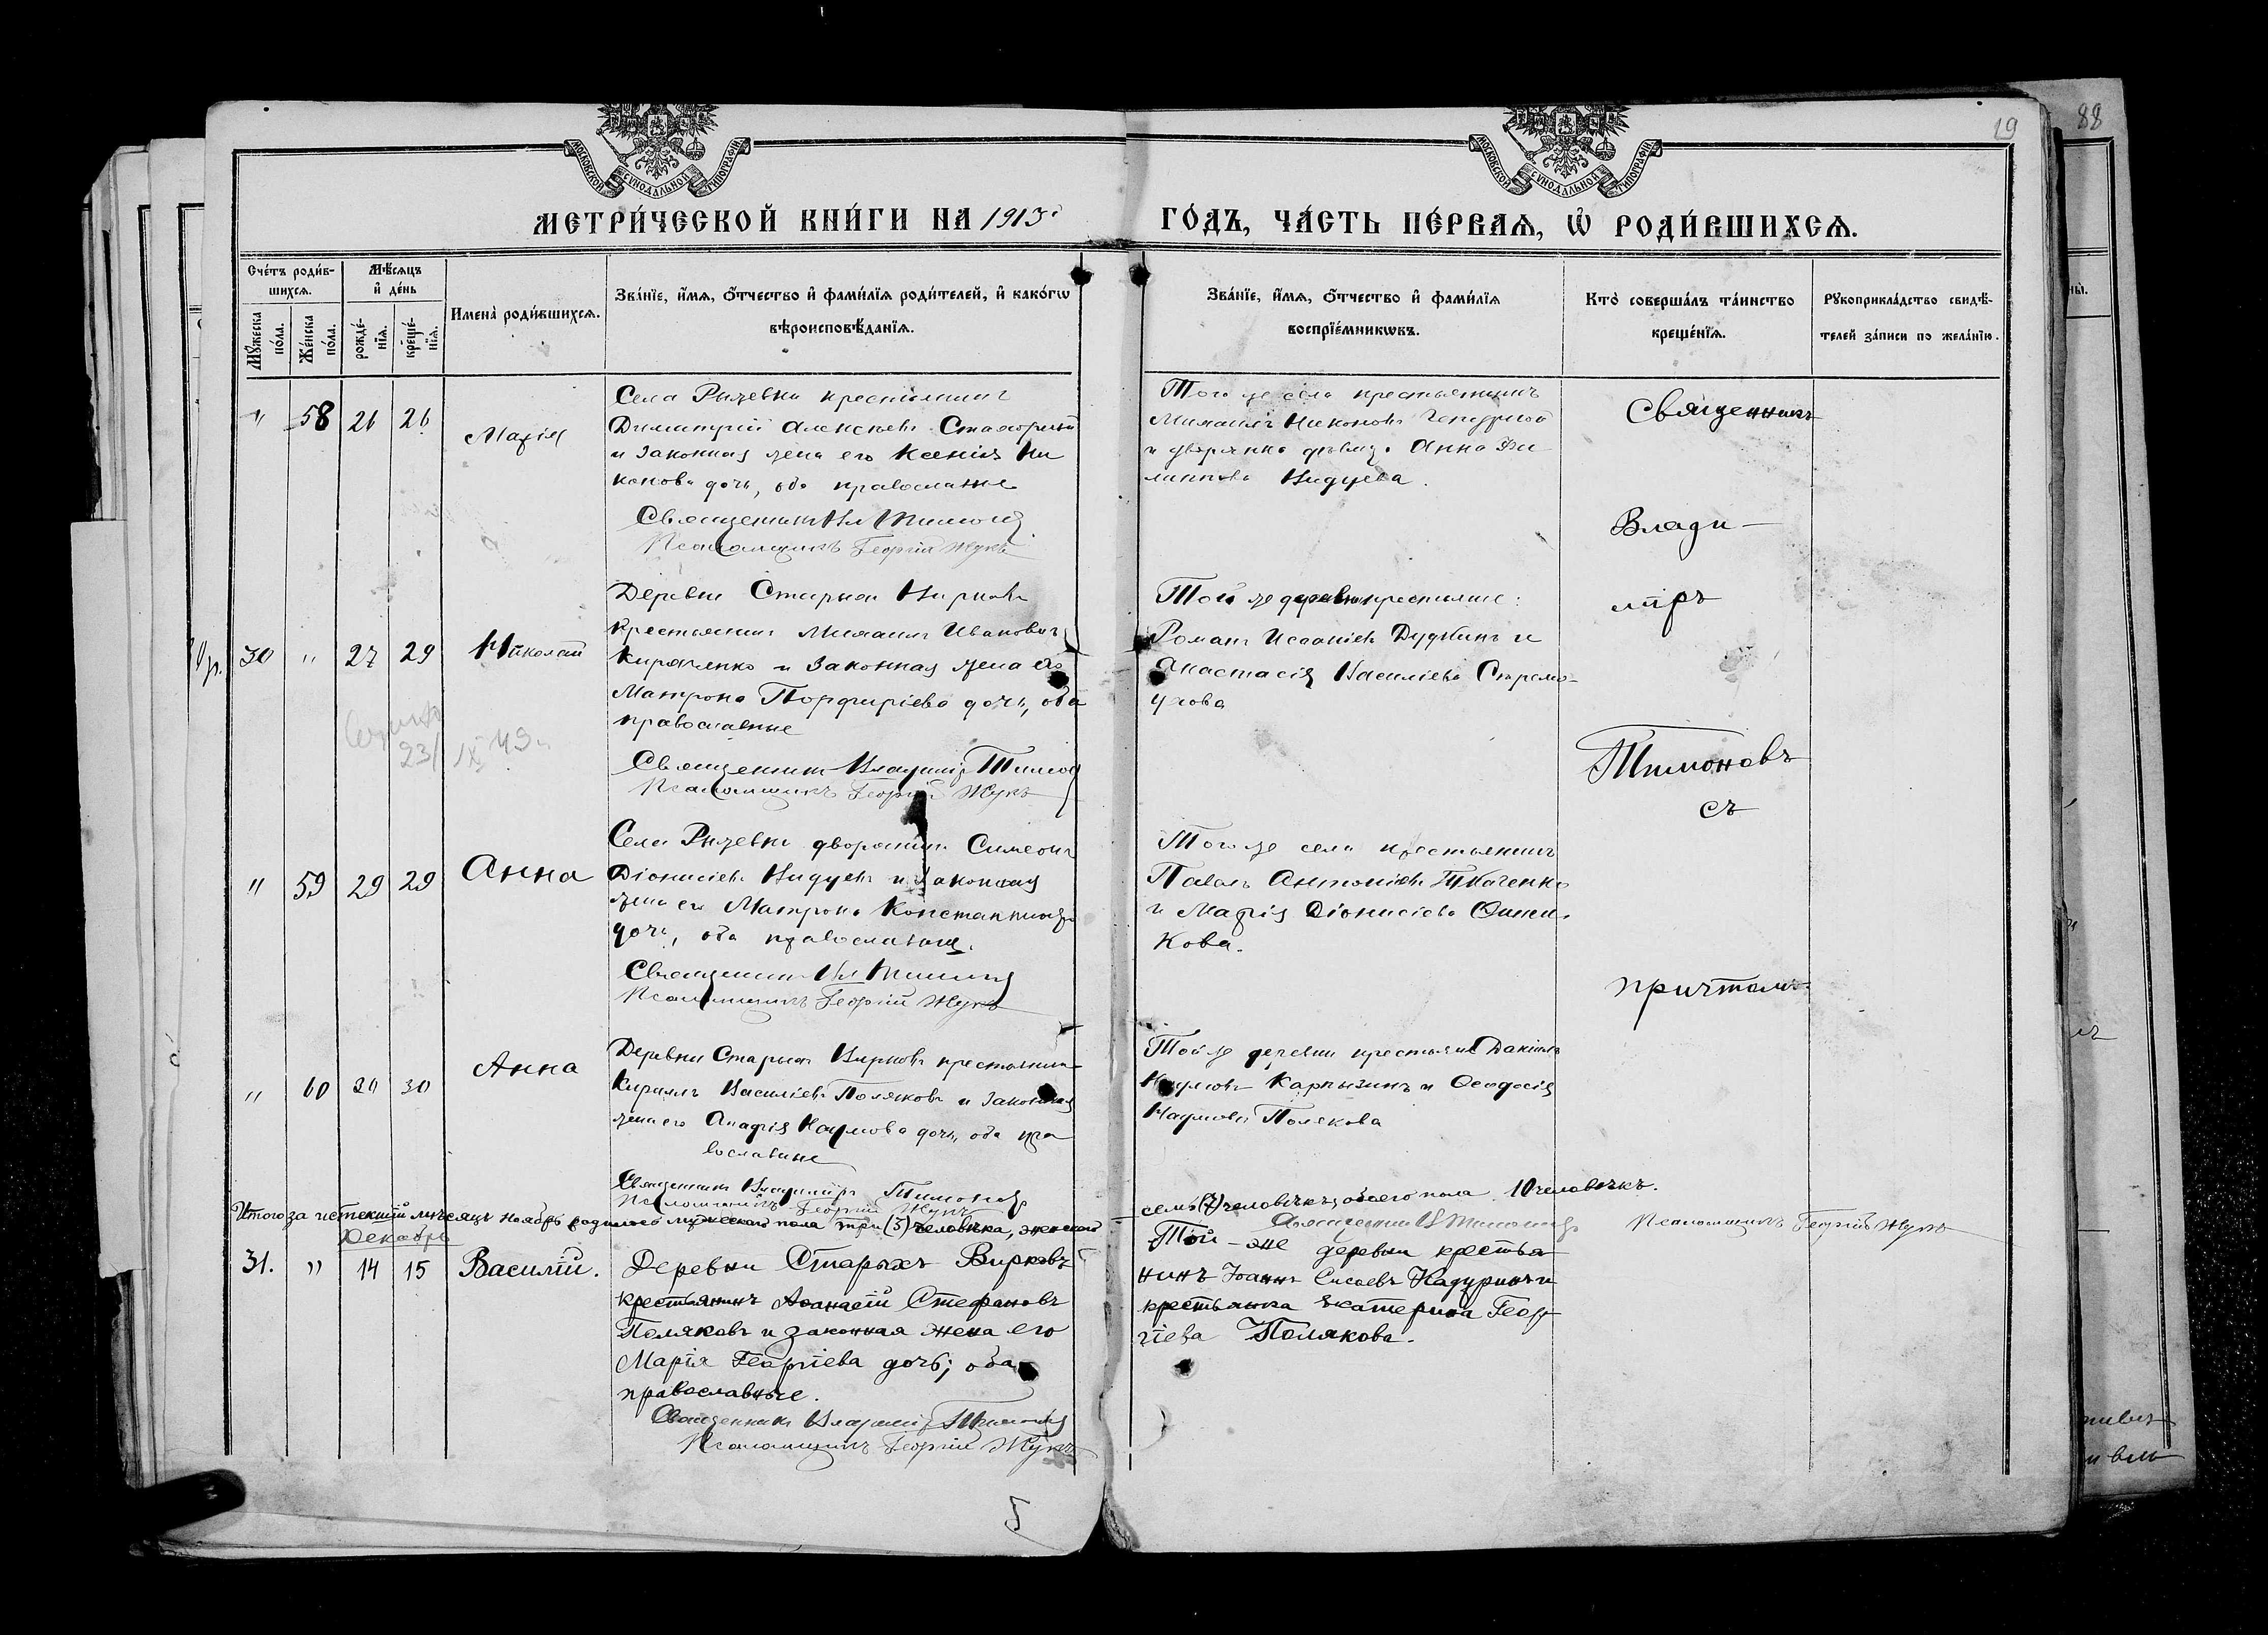 МОСКОВСКОЙ СѴНОДАЛЬНОЙ ТИПОГРАФІИ
МОСКОВСКОЙ СѴНОДАЛЬНОЙ ТИПОГРАФІИ
19
88
МЕТРИ́ЧЕСКОЙ КНИ́ГИ НА 1913
ГО́ДЪ, ЧА́СТЬ ПЕ́РВАѦ, Ѡ҆ РОДИ́ВШИХСѦ.
Сче́тъ роди́в-
шихсѧ.
Мꙋ́жеска по́ла.
Же́нска по́ла.
Мѣ́сѧцъ
и҆ де́нь
рожде́-
нїѧ.
креще́-
нїѧ.
Имена̀ роди́вшихсѧ.
Зва́нїе, и҆́мѧ, ѻ҆́тчество и҆ фами́лїѧ роди́телей, и҆ како́гѡ
вѣроисповѣ́данїѧ.
Зва́нїе, и҆́мѧ, ѻ҆́тчество и҆ фами́лїѧ
воспрїе́мникѡвъ.
Кто̀ соверша́лъ та́инство
креще́нїѧ.
Рꙋкоприкла́дство свидѣ́-
телей за́писи по жела́нїю.
" 58 26 26
Марія
Села Рыжевки крестьянинъ
Димитрій Алексѣевъ
и законная жена его Ксенія Ни
конова дочь, оба православные
Священникъ Вл Тимоновъ
Псаломщикъ Георгій Жукъ
Того же села крестьянинъ
Михаилъ Никоновъ
и дворянка дѣвица Анна Фи
липпова Кидуева.
Священникъ
Влади-
міръ
Тимоновъ
съ
причтомъ
30 " 27 29
Николай
Деревни Старыхъ Вирковъ
крестьянинъ Михаилъ Ивановичъ
Кириченко и законная жена его
Матрона Порфиріева дочь, оба
православные
Священникъ Владиміръ Тимоновъ
Псаломщикъ Георгій Жукъ
Той же деревни крестьяне:
Романъ Исааніевъ Дудкинъ и
Анастасія Василіева Стремо-
ухова
23/IX 43
" 59 29 29
Анна
Села Рыжевки дворянинъ Симеонъ
Діонисіевъ Кидуевъ и законная
жена его Матрона Константинова
дочь, оба православные.
Священникъ Вл Тимоновъ
Псаломщикъ Георгій Жукъ
Того же села крестьянинъ
Павелъ Антоніевъ Ткаченко
и Марія Діонисіева
кова.
" 60 29 30
Анна
Деревни Старыхъ Вирковъ крестьянинъ
Кириллъ Василіевъ Поляковъ и законная
жена его Наумова дочь, оба пра
вославные
Священникъ Владиміръ Тимоновъ
Псаломщикъ Георгій Жукъ
Той же деревни крестьяне Даніилъ
Наумовъ Карпызинъ и Ѳеодосія
Наумова Полякова
Итого за истекшій мѣсяцъ ноябрь родилось мужескаго пола три (3) человѣка, женскаго
семь (7) человѣкъ, обоего пола 10 человѣкъ.
Священникъ В Тимоновъ Псаломщикъ Георгій Жукъ
Декабрь
31. " 14 15
Василій.
Деревни Старыхъ Вирковъ
крестьянинъ Аѳанасій Стефановъ
Поляковъ и законная жена его
Марія Георгіева дочь; оба
православные.
Священникъ Владиміръ Тимоновъ
Псаломщикъ Георгій Жукъ
Той-же деревни крестья
нинъ Іоаннъ Сисоевъ Кадуринъ и
крестьянка Екатерина Геор
гіева Полякова.